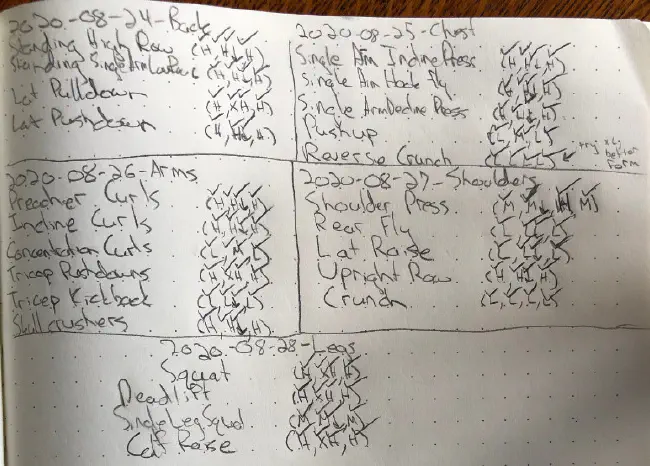 2020-08-24-Back
Standing High Row (H, H, H)
Standing Single Arm Low Row (H, H, H)
Lat Pulldown (H, XH, H)
Lat Pushdown (H, H, H)
2020-08-25-Chest
Single Arm Incline Press
Single Arm Hook Fly
Single Arm Decline Press
Pushup (L, L, L)
Reverse Crunch (L, L, L) try XL, better form
2020-08-26-Arms
Preacher Curls (H, H, H)
Incline Curls (H, H, H)
Concentration Curls
Tricep Pushdowns (H, XH, H)
Tricep Kickback (L, L, L)
Skullcrushers (H, H, H)
2020-08-27-Shoulders
Shoulder Press (M, M, H, M)
Rear Fly (L, L, L)
Lat Raise
Upright Row (H, H, H)
Crunch (L, L, L, L)
2020-08-28-Legs
Squat (H, XH, H)
Deadlift
Single Leg Squat (M, H, M)
Calf Raise (H, XH, H)